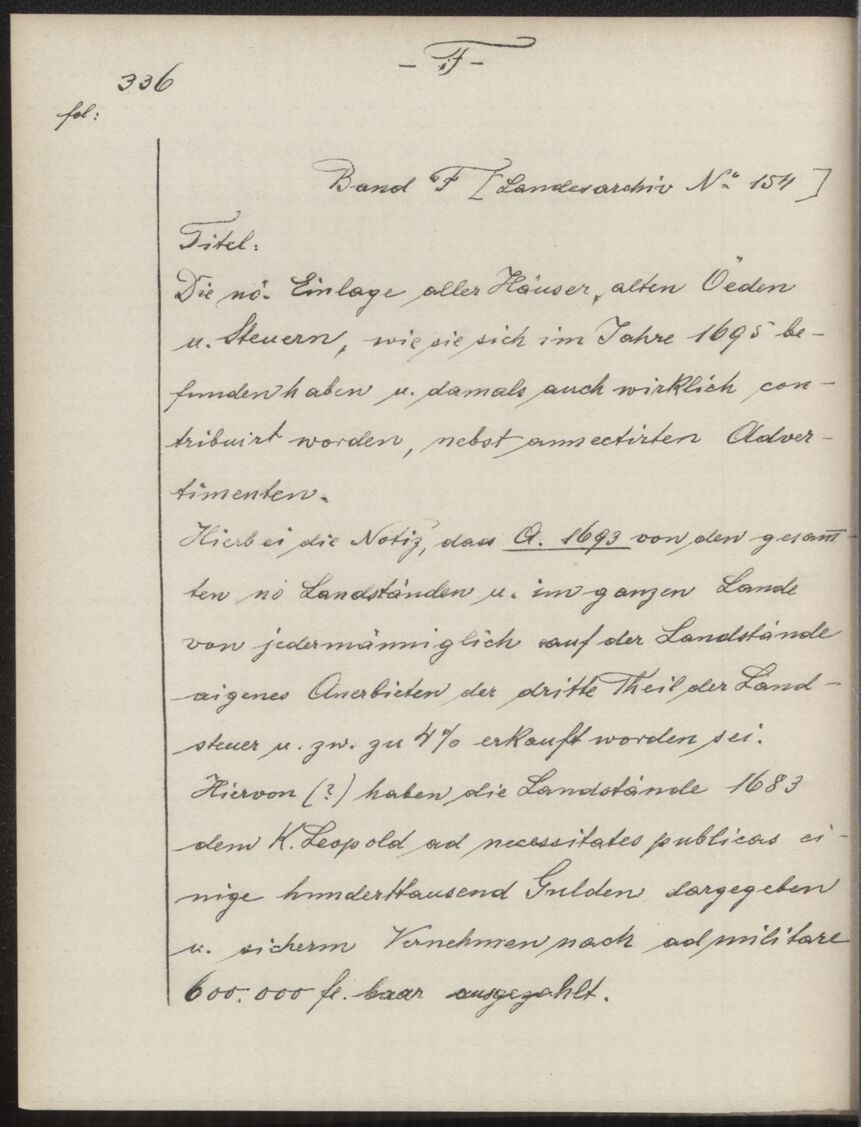 - F -
336
fol:
Band F [Landesarchiv No 154]
Titel:
Die nö. Einlage aller Häuser, alten Öeden
u. Steuern, wie sie sich im Jahre 1695 be-
funden haben u. damals auch wirklich con-
tribuirt worden, nebst annectirten Adver-
timenten.
Hierbei die Notiz, dass A. 1693 von den gesam̅-
ten nö Landständen u. im ganzen Lande
von jedermänniglich auf der Landstände
aigenes Anerbieten der dritte Theil der Land-
steuer u. zw. zu 4% erkauft worden sei.
Hiervon (?) haben die Landstände 1683
dem K. Leopold ad necessitates publicas ei-
nige hunderttausend Gulden dargegeben
u. sicherm Vernehmen nach ad militare
600.000 fl. baar ausgezahlt.